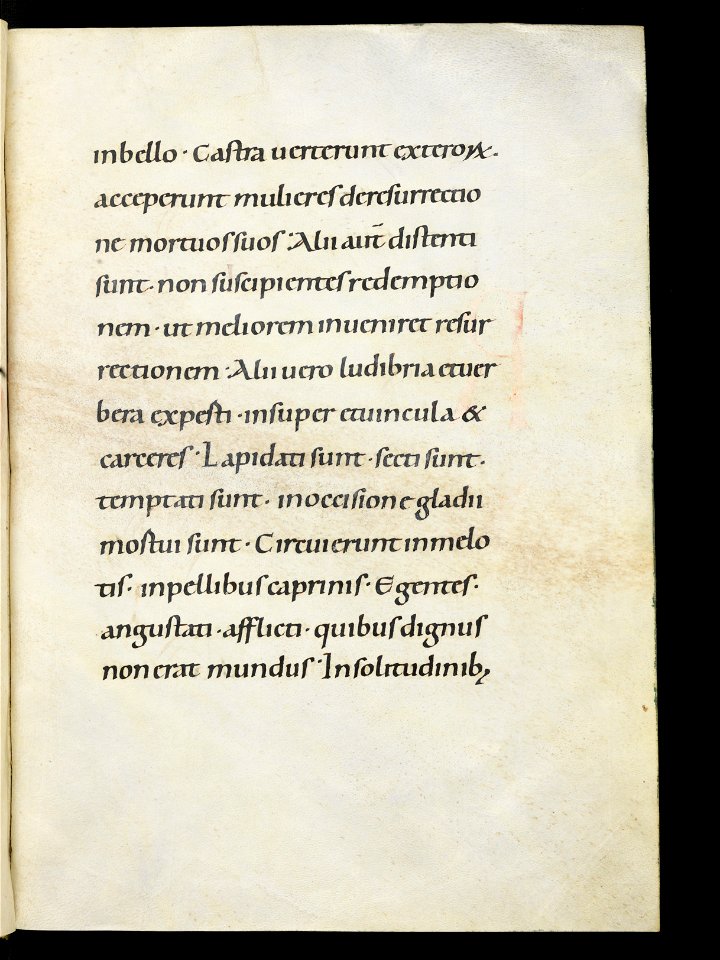 inbello · Castra uerterunt exteroꝝ.
acceperunt mulieres deresurrectio
ne mortuos suos · Alii aut̄ distenti
sunt · non suscipientes redemptio
nem · ut meliorem inueniret resur
rectionem · Alii uero ludibria etuer
bera expesti · insuper etuincula &
carceres · Lapidati sunt · secti sunt ·
temptati sunt · inoccisione gladii
mostui sunt · Circuierunt inmelo
tis · inpellibus caprinis · Egentes ·
angustati · afflicti · quibus dignus
non erat mundus · Insolitudinibꝫ